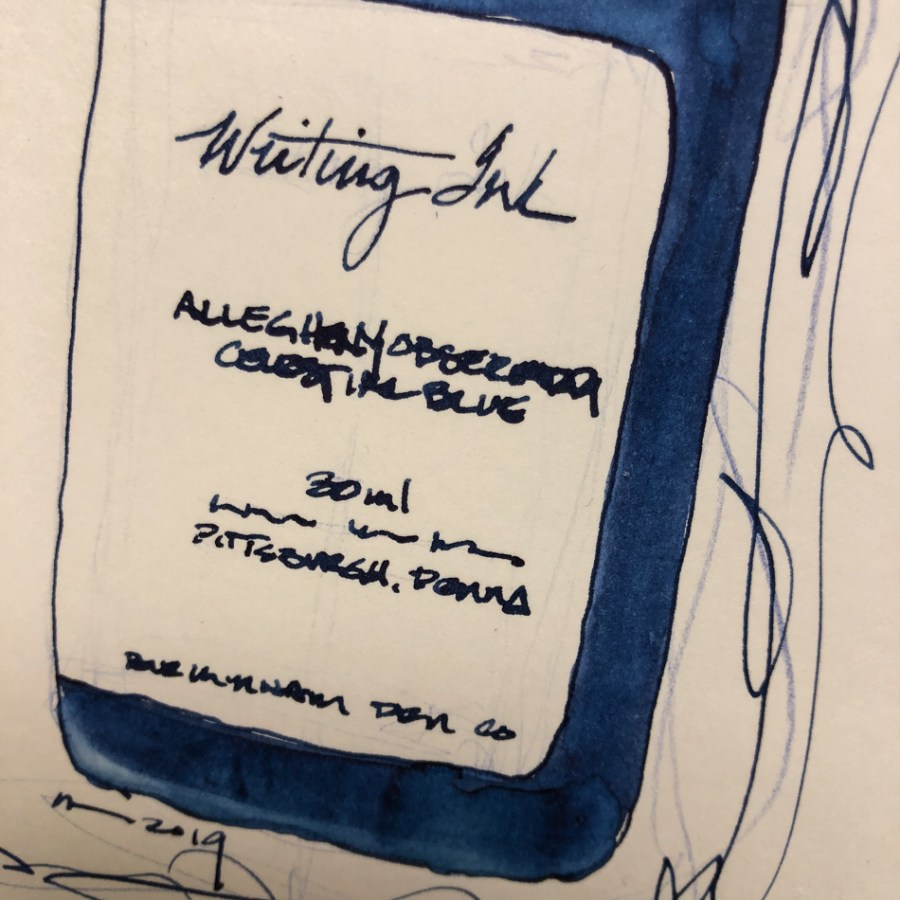 Writing Ink
ALLEGHENY OBSERVATORY
CELESTIAL BLUE
30 ml
PITTSBURGH, PENNA
PEN CO
2019